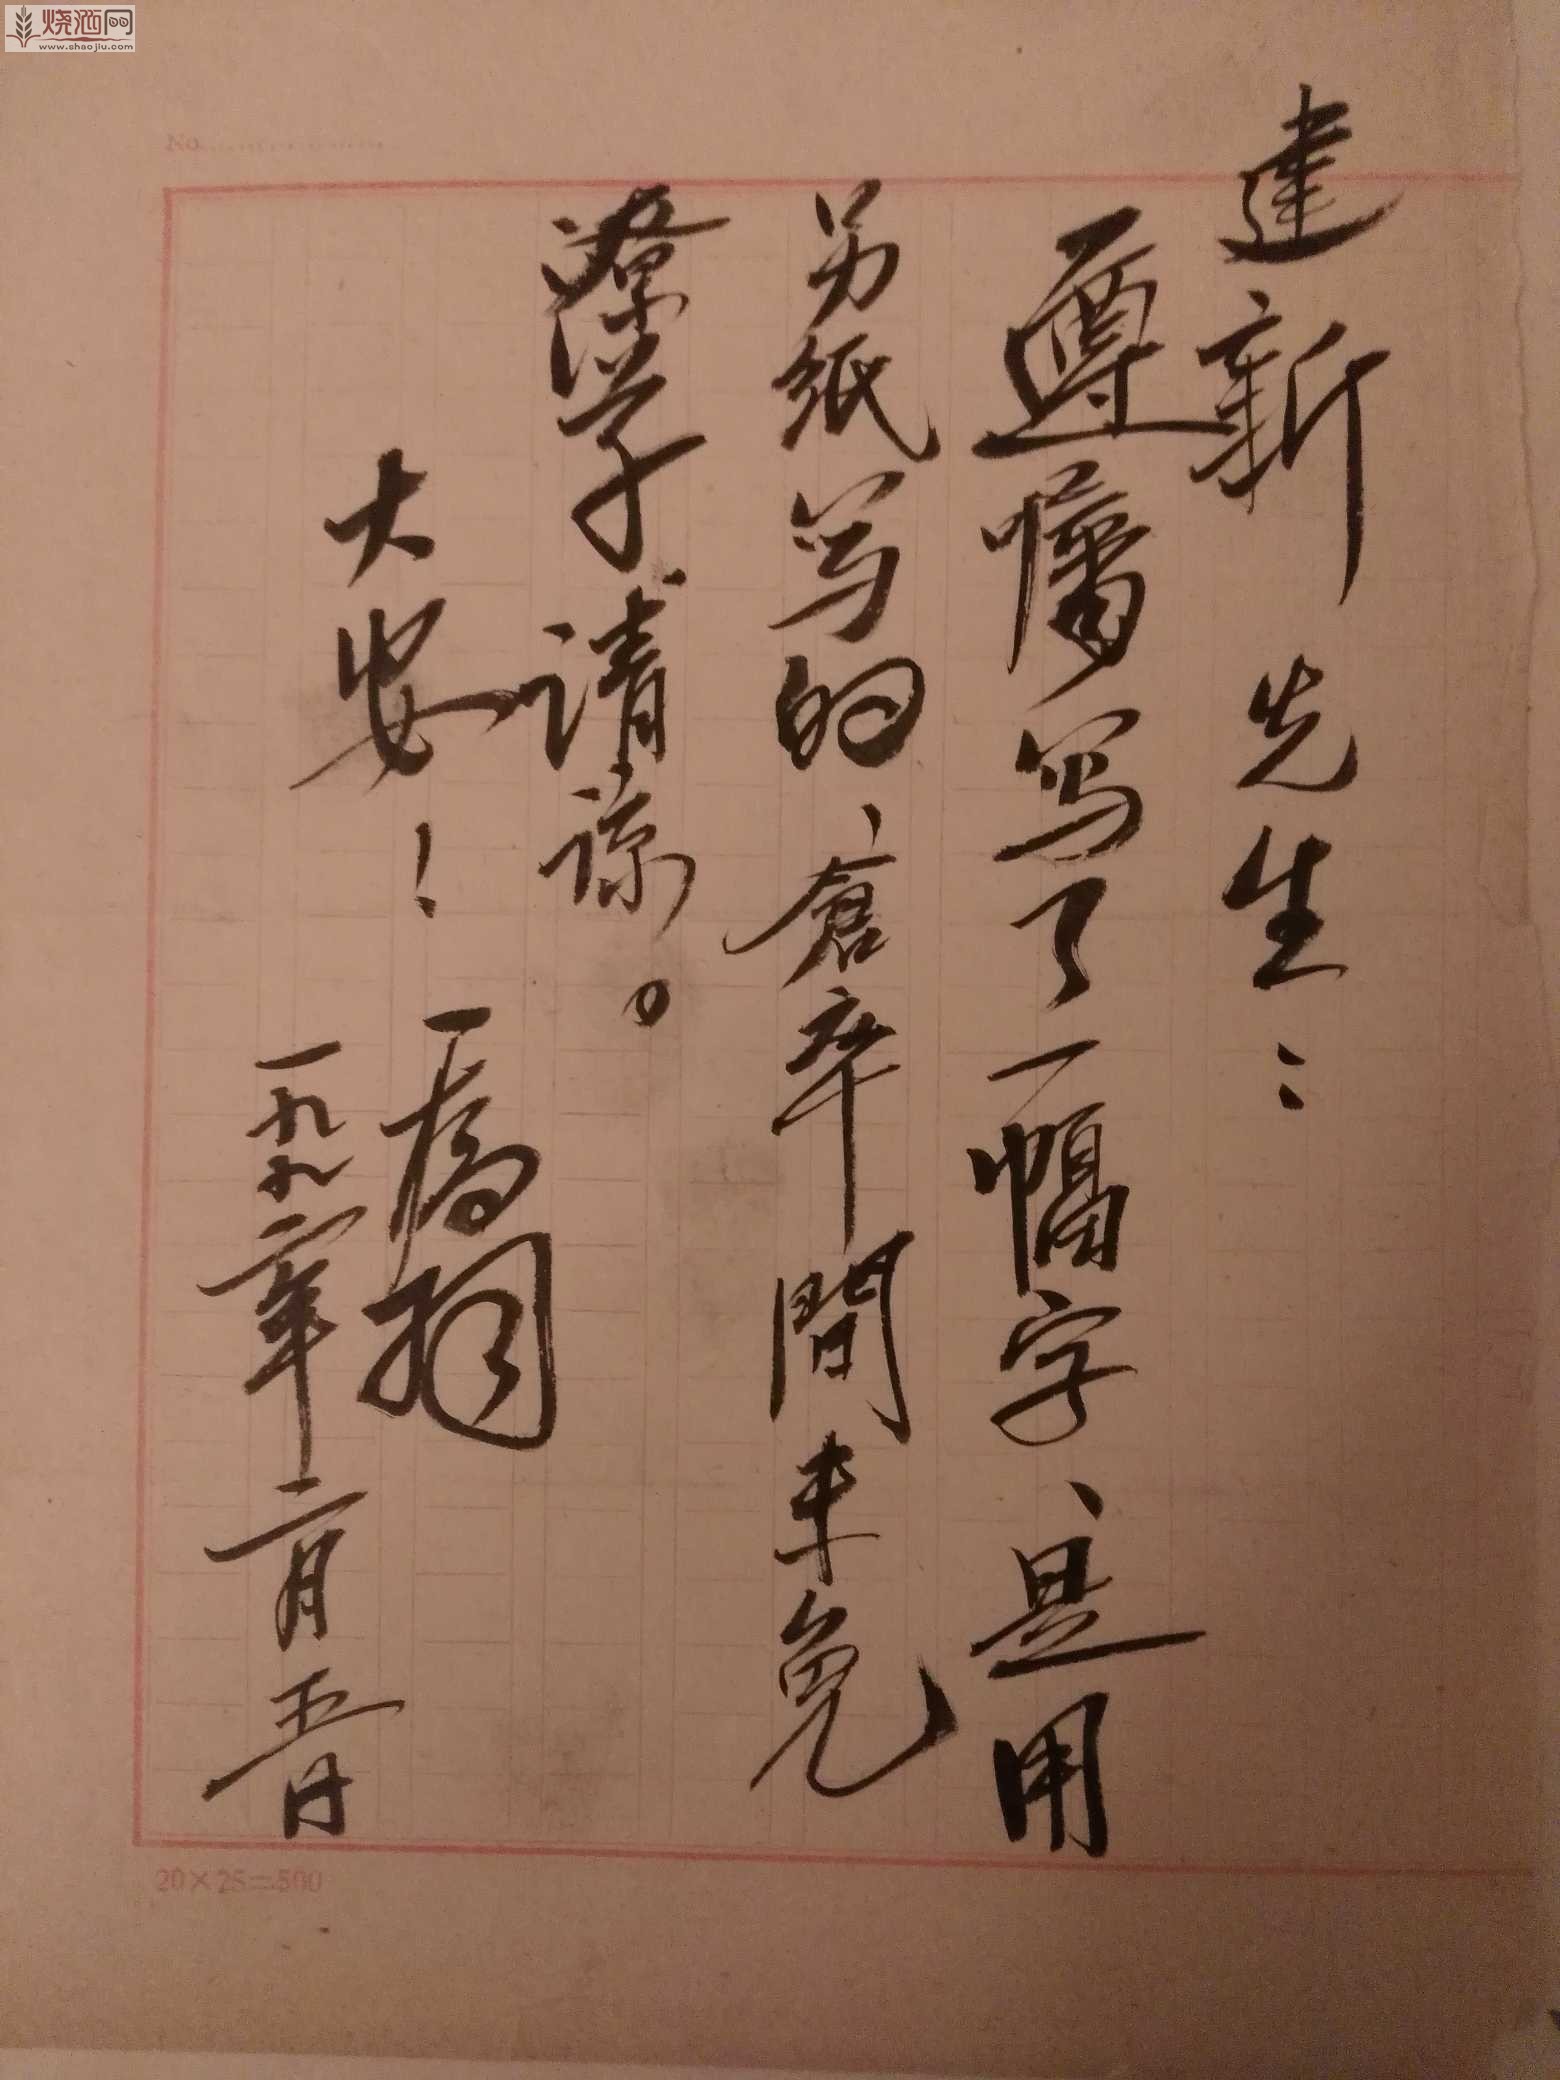 建新先生：
遵嘱写了一幅字、是用
另纸写的、倉卒間未免
潦草、请谅。
大安！
一九九六年二月五日
烧酒网
www.shaojiu.com
No
20×25=500